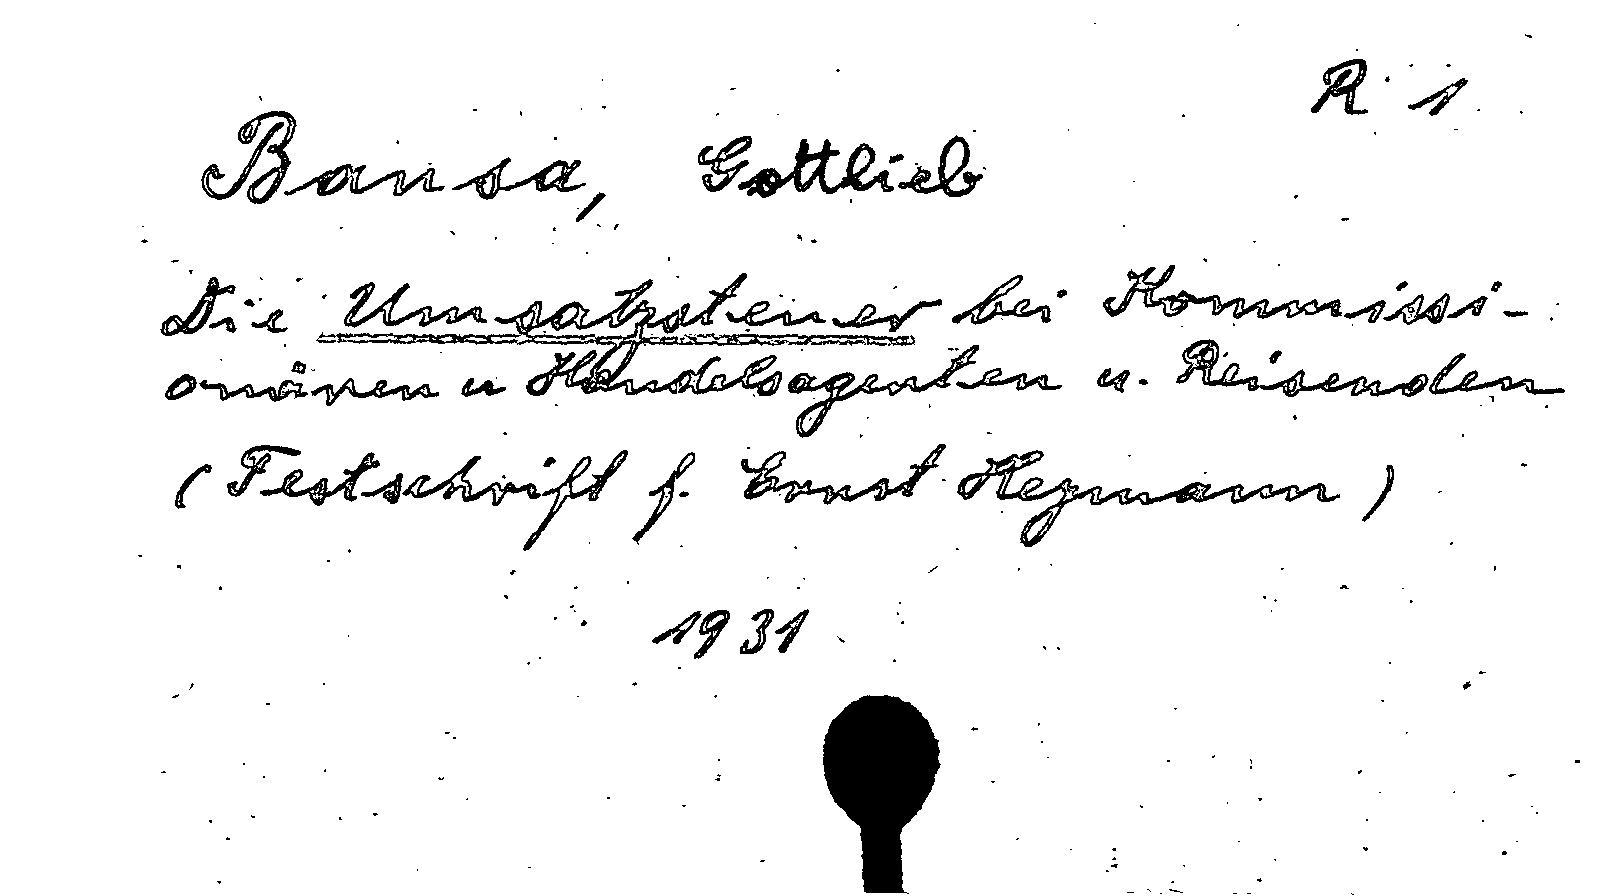 R 1
Bansa, Gottlieb
Die Umsatzsteuer bei Kommissi-
onären u Handelsagenten u. Reisenden
(Festschrift f. Ernst Heymann)
1931